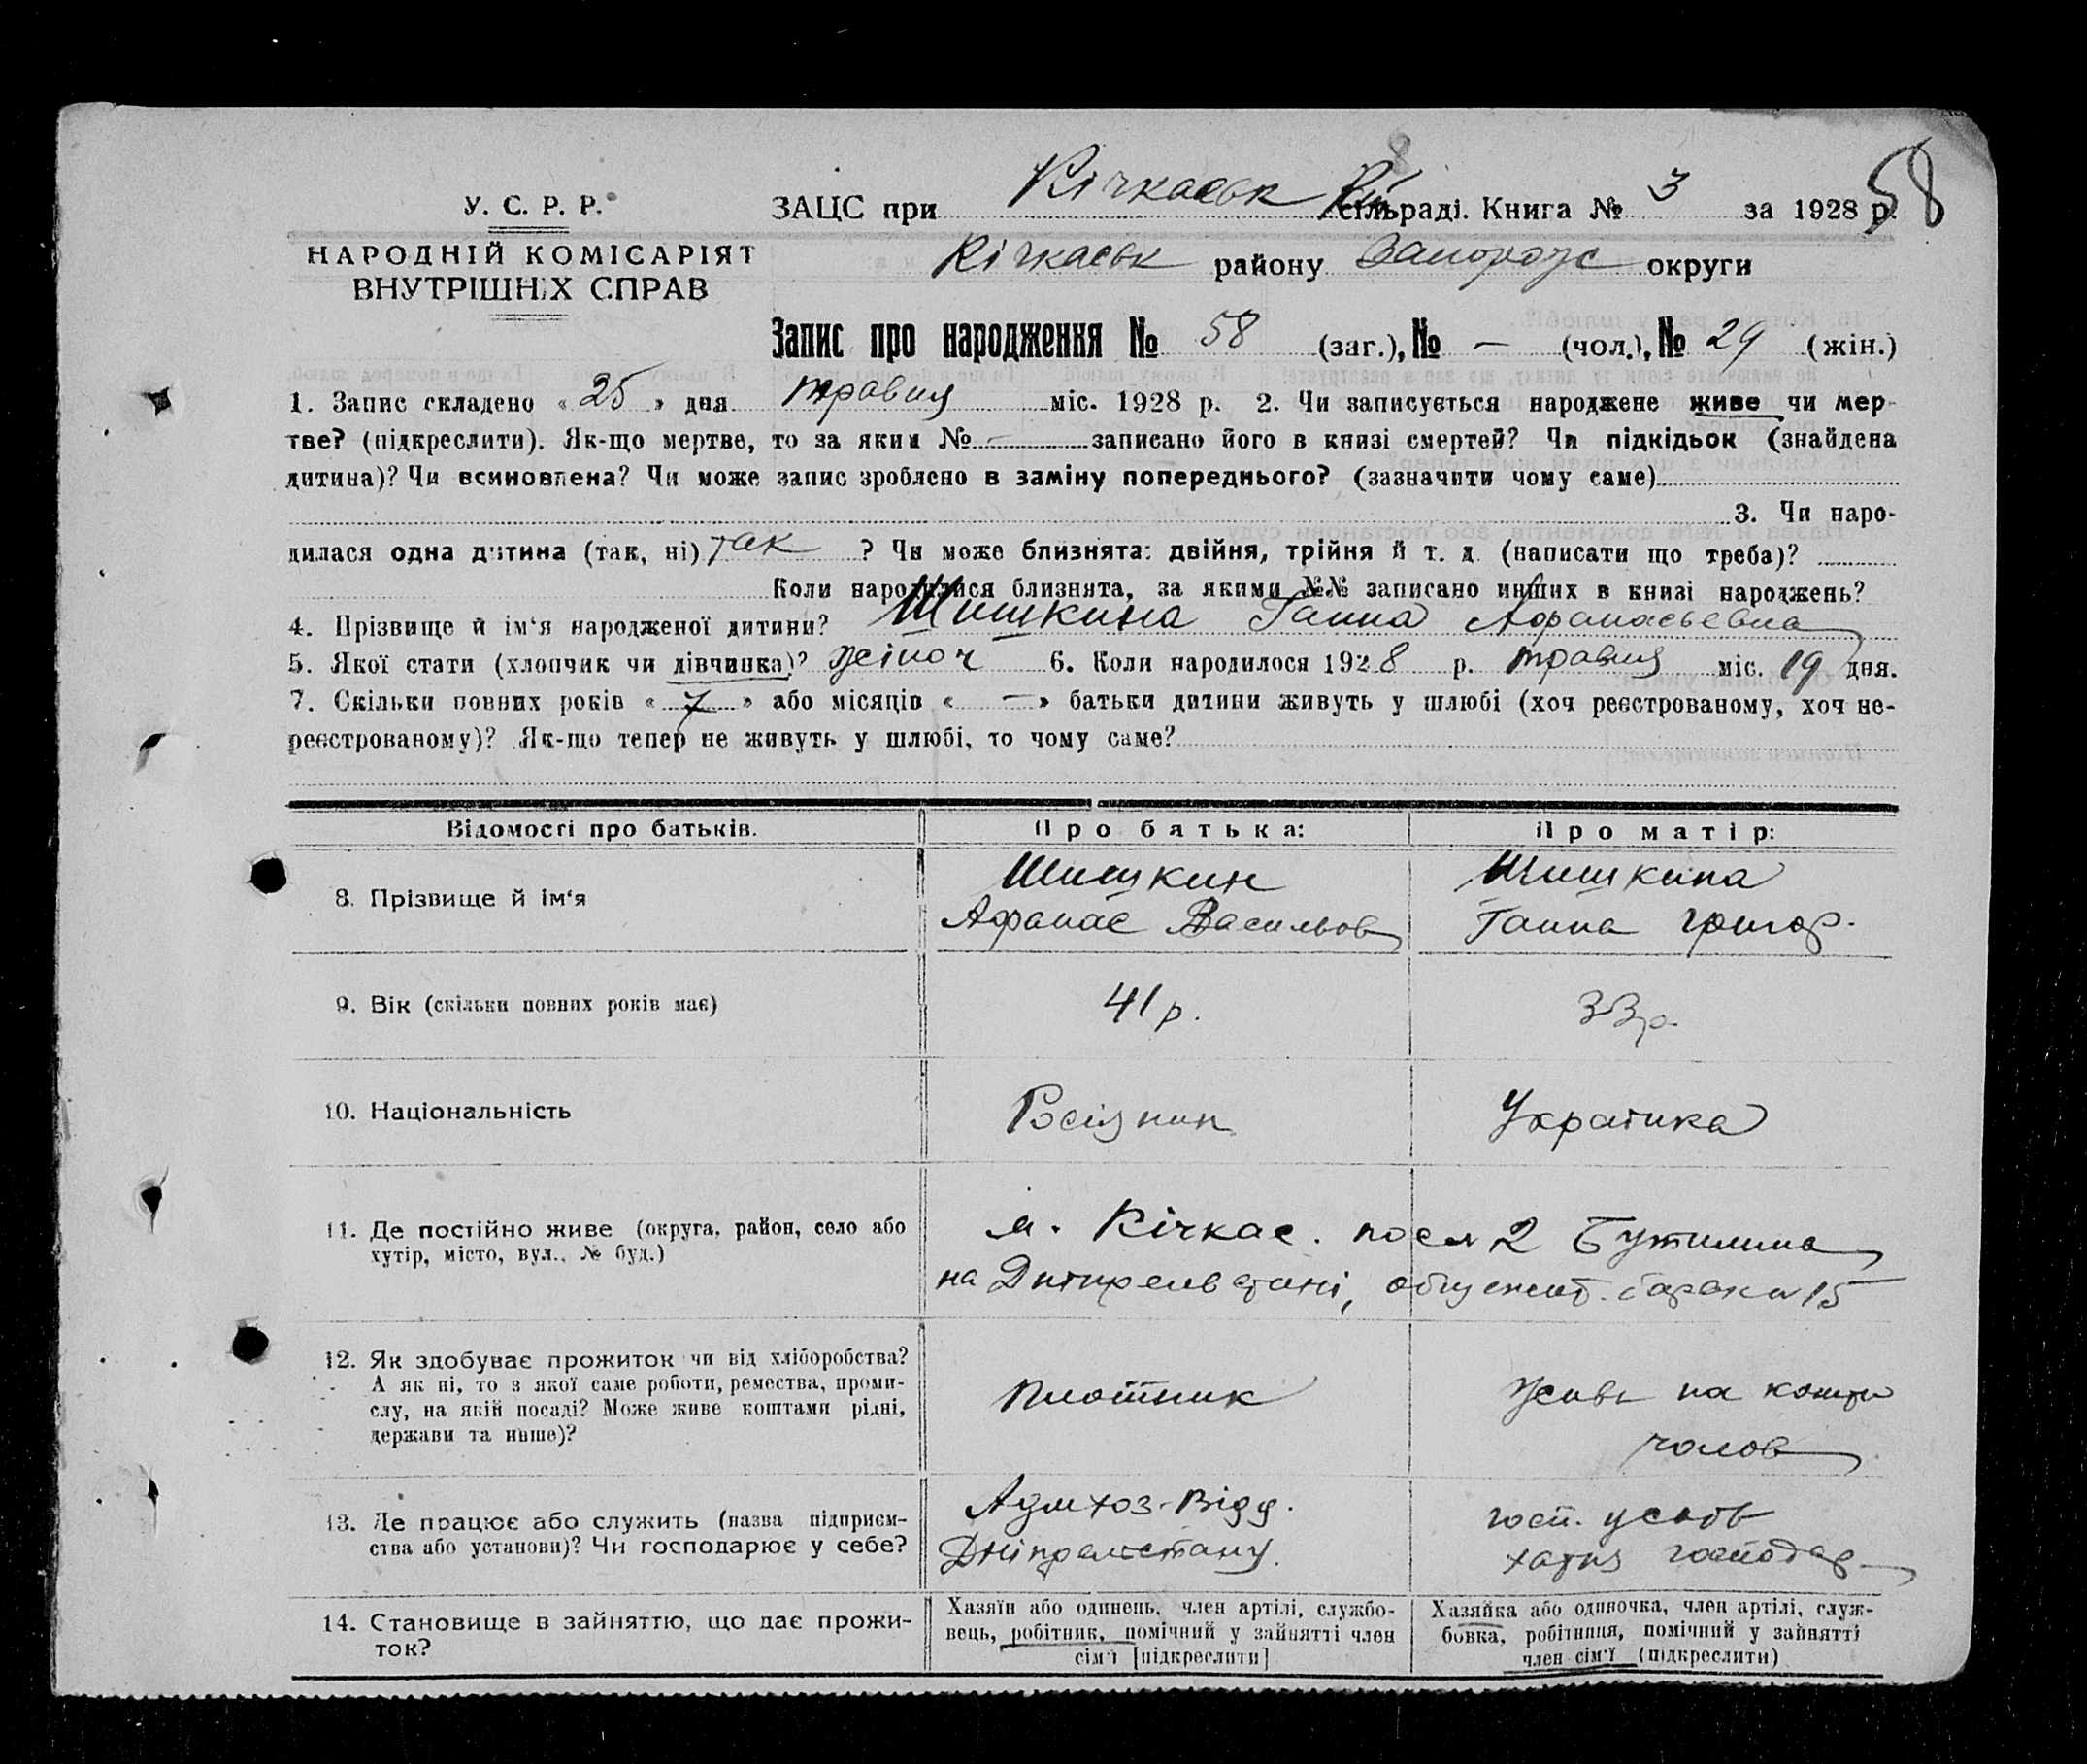 58
У. С. Р. Р.
НАРОДНІЙ КОМІСАРІЯТ
ВНУТРІШНІХ СПРАВ
ЗАЦС при Кічкаськ сільраді. Книга № 3 за 1928 р.
Кічкаськ району Запорозс округи
Запис про народження № 58 (заг.), № — (чол.), № 29 (жін.)
1. Запис складено «25» дня травня міс. 1928 р. 2. Чи записується народжене живе чи мер-
тве? (підкреслити). Як-що мертве, то за яким № — записано його в книзі смертей? Чи підкідьок (знайдена
дитина)? Чи всиновлена? Чи може запис зроблено в заміну попереднього? (зазначити чому саме)
3. Чи наро-
дилася одна дитина (так, ні) так ? Чи може близнята: двійня, трійня й т. д. (написати що треба)?
Коли народилися близнята, за якими №№ записано инших в книзі народжень?
4. Прізвище й ім'я народженої дитини? Шишкина Ганна Афанасьевна
5. Якої стати (хлопчик чи дівчинка)? жіноч 6. Коли народилося 1928 р. травня міс. 19 дня.
7. Скільки повних років «7» або місяців «—» батьки дитини живуть у шлюбі (хоч реєстрованому, хоч не-
реєстрованому)? Як-що тепер не живуть у шлюбі, то чому саме?
Відомості про батьків. Про батька: Про матір:
8. Прізвище й ім'я
Шишкин
Афанас Васильов
Шишкина
Ганна Григор.
9. Вік (скільки повних років має) 41 р. 33 р.
10. Національність Росіянин Українка
11. Де постійно живе (округа, район, село або
хутір, місто, вул., № буд.)
м. Кічкас. посел 2 Бутилина
на, барак № 15
12. Як здобуває прожиток чи від хліборобства?
А як ні, то з якої саме роботи, ремества, проми-
слу, на якій посаді? Може живе коштами рідні,
держави та инше)?
Плотник
Живе на кошти
чолов
13. Де працює або служить (назва підприєм-
ства або установи)? Чи господарює у себе?
Адмхоз-Відд.
Дніпрельстану.
госп. у своїй
хатня господар
14. Становище в зайняттю, що дає прожи-
ток?
Хазяїн або одинець, член артілі, службо-
вець, робітник, помічний у зайнятті член
сім'ї [підкреслити]
Хазяйка або одиночка, член артілі, служ-
бовка, робітниця, помічний у зайнятті
член сім'ї (підкреслити)